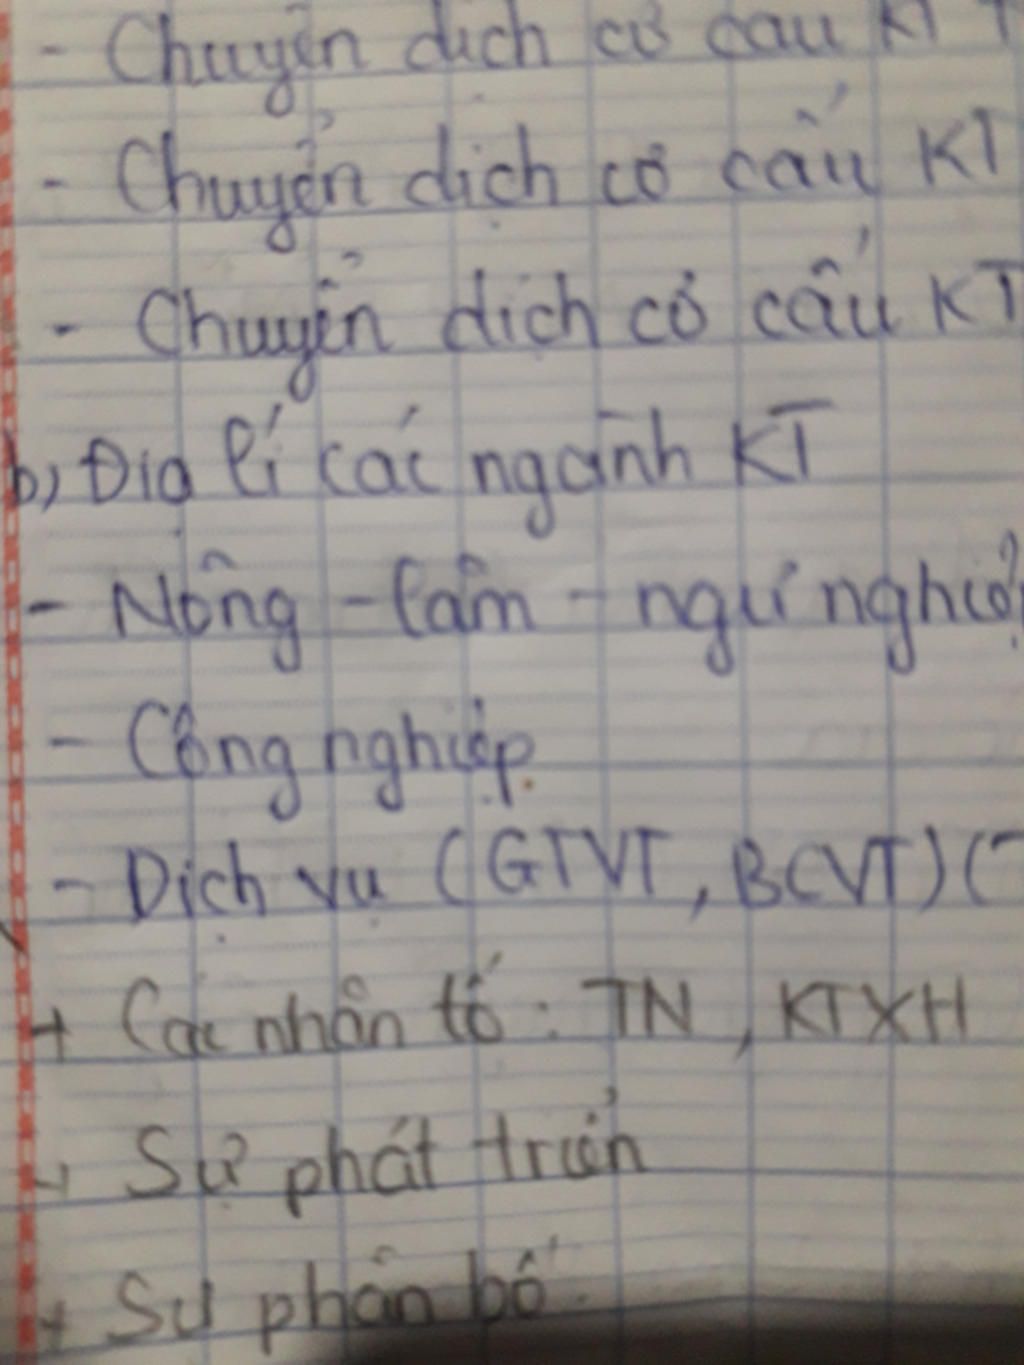 - Chuyển dịch cơ cấu KT
- Chuyển dịch cơ cấu KT
- Chuyển dịch cơ cấu KT
b) Địa lí các ngành KT
- Nông - lâm - ngư nghiệp
- Công nghiệp.
- Dịch vụ (GTVT, BCVT) (
+ Các nhân tố : TN, KTXH
+ Sự phát triển
+ Sự phân bố.